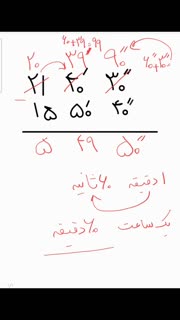 ۶۰+۳۹=۹۹
۲۰ ۳۹′ ۹۰″ ۶۰″+۳۰″
۲۱ ۴۰′ ۳۰″
− ۱۵ ۵۰′ ۴۰″
۵ ۴۹ ۵۰″
۱ دقیقه ۶۰ ثانیه
یک ساعت ۶۰ دقیقه